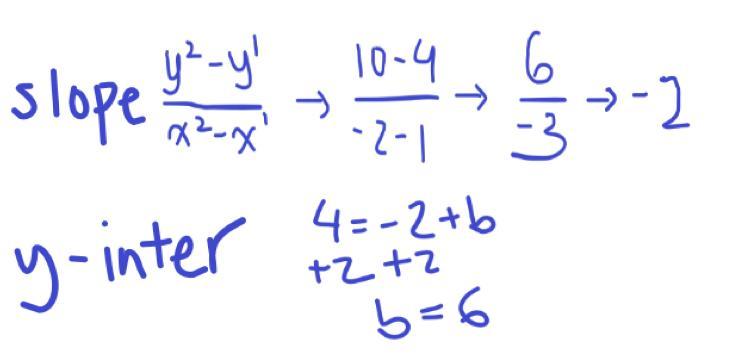 slope y²-y¹/x²-x¹ → 10-4/-2-1 → 6/-3 → -2
y-inter 4=-2+b
+2 +2
b=6